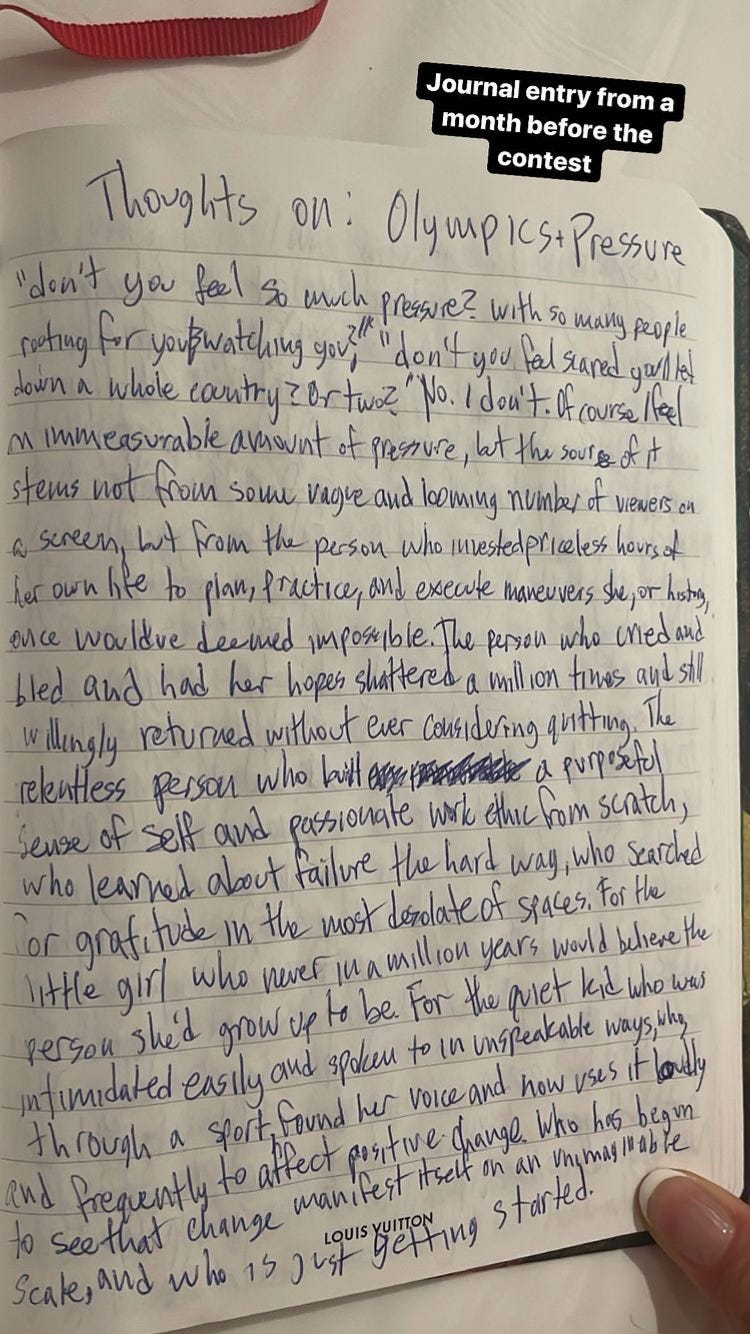 Journal entry from a
month before the
contest
Thoughts on: Olympics + Pressure
"don't you feel so much pressure? With so many people
rooting for you & watching you?" "don't you feel scared you'll let
down a whole country? Or two?" No. I don't. Of course I feel
an immeasurable amount of pressure, but the source of it
stems not from some vague and looming number of viewers on
a screen, but from the person who invested priceless hours of
her own life to plan, practice, and execute maneuvers she, or history,
once would've deemed impossible. The person who cried and
bled and had her hopes shattered a million times and still
willingly returned without ever considering quitting. The
relentless person who built a purposeful
sense of self and passionate work ethic from scratch,
who learned about failure the hard way, who searched
for gratitude in the most desolate of spaces. For the
little girl who never in a million years would believe the
person she'd grow up to be. For the quiet kid who was
intimidated easily and spoken to in unspeakable ways, who,
through a sport, found her voice and now uses it loudly
and frequently to affect positive change. Who has begun
to see that change manifest itself on an unimaginable
scale, and who is just getting started.
LOUIS VUITTON